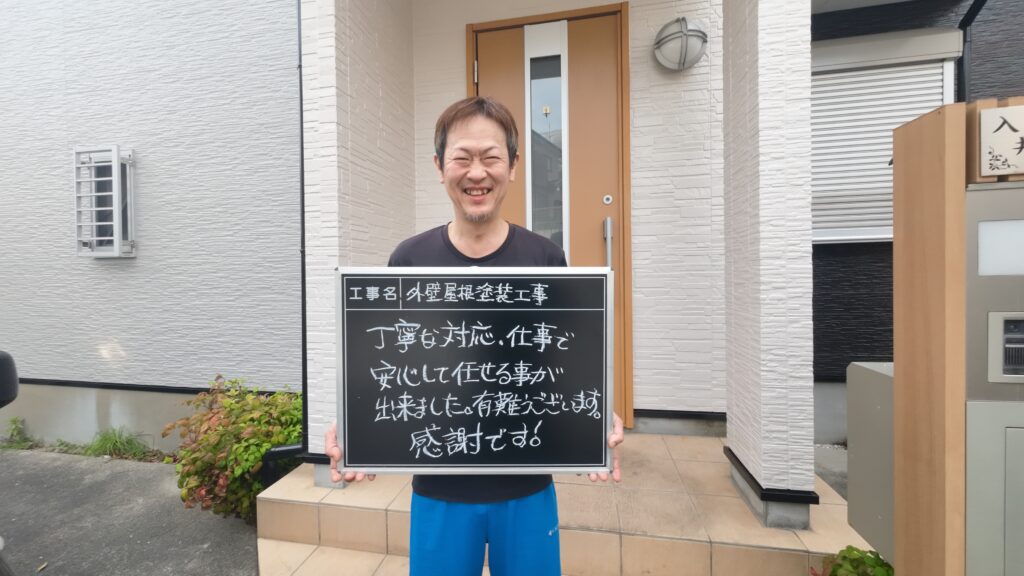 工事名 外壁屋根塗装工事
丁寧な対応、仕事で
安心して任せる事が
出来ました。有難うございます。
感謝です!
入井